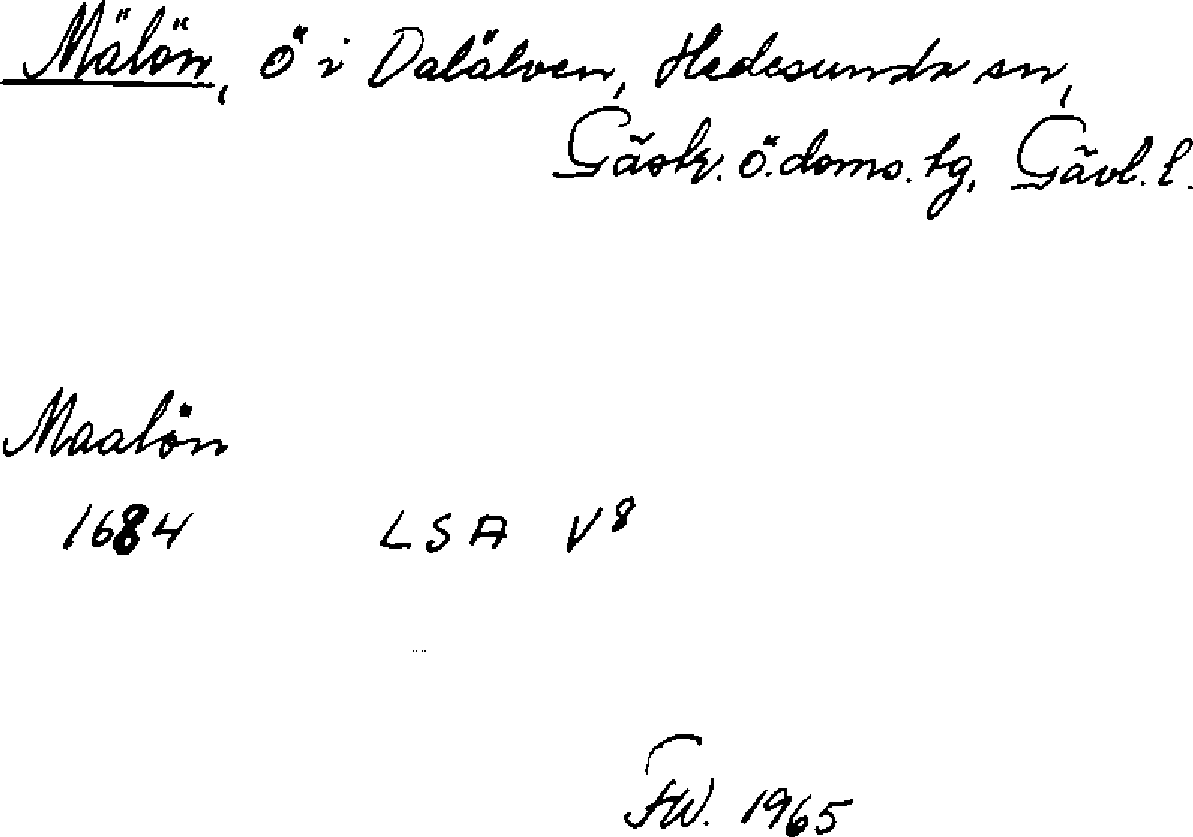 Mälön, ö i Dalälven, Hedesunda sn,
Gästr. ö. doms. tg, Gävl. l.
Maalön
1684 LSA V8
FW. 1965